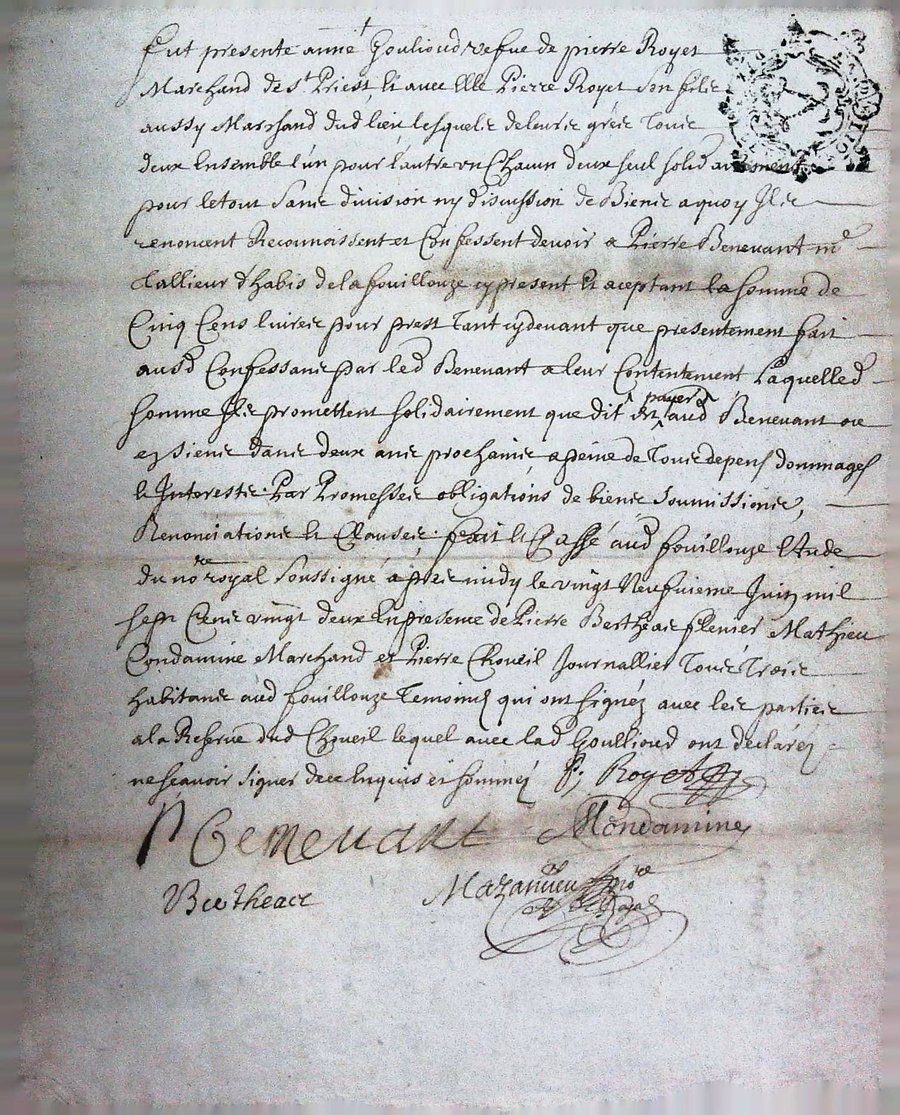 Fut presente anne Goulioud vefue de pierre Royet
Marchand de St Priest, et avec Elle Pierre Royet Son filz
aussy Marchand dud lieu lesquelz de leurs grées Tous
deux Ensemble l'un pour l'autre un Chacun deux seul solidairement
pour le tout Sans division ny discussion de Biens a quoy Ilz
renoncent Reconnoissent et Confessent devoir a Pierre Benevant me
d'habis de la fouillouze cy present Et aceptant la somme de
Cinq Cens livres pour prest Tant cydevant que presentement fait
ausd Confessans par led Benevant a leur Contentement Laquelled
somme Ilz promettent solidairement que dit est payer aud Benevant ou
es siens dans deux ans prochains a peine de Tous depens dommages
et Interestz Par Promesses obligations de biens Soumissions,
Renonciations et Clauses: fait et Passé aud fouillouze Etude
du nore royal soussigné apres midy le vingt Neufvieme Juin mil
sept Cens vingt deux En presence de Pierre Bertheas Mathieu
Condamine Marchand et Pierre Choveil Journallier Tous Trois
habitans aud fouillouze Temoins qui ont signéz avec les parties
a la Reserve dud Choveil lequel avec lad Goullioud ont declaréz
ne scavoir signer de ce Enquis et sommez P, Royet
P Benevant MCondamine
Bertheas nore
Royal